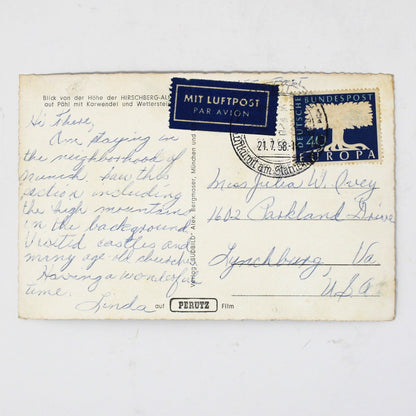 Blick von der Höhe der HIRSCHBERG-AL
auf Pähl mit Karwendel und Wetterstei
Hi There,
Am staying in
the neighborhood of
Munich. Saw this
section including
the high mountain
in the background.
Visited castles and
many age-old churches
Having a wonderful
time.
Linda
MIT LUFTPOST
PAR AVION
21.7.58-
DEUTSCHE
BUNDESPOST
40
EUROPA
Miss Julia W. Ovey
1602 Parkland Drive
Lynchburg, Va.
USA
Alex. Bergmoser, München und
auf PERUTZ Film